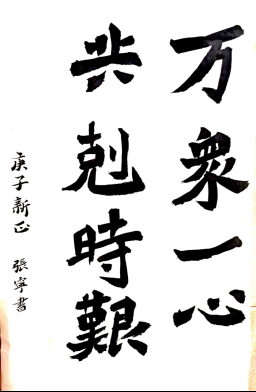 万眾一心
共剋時艱
庚子新正 張寧書